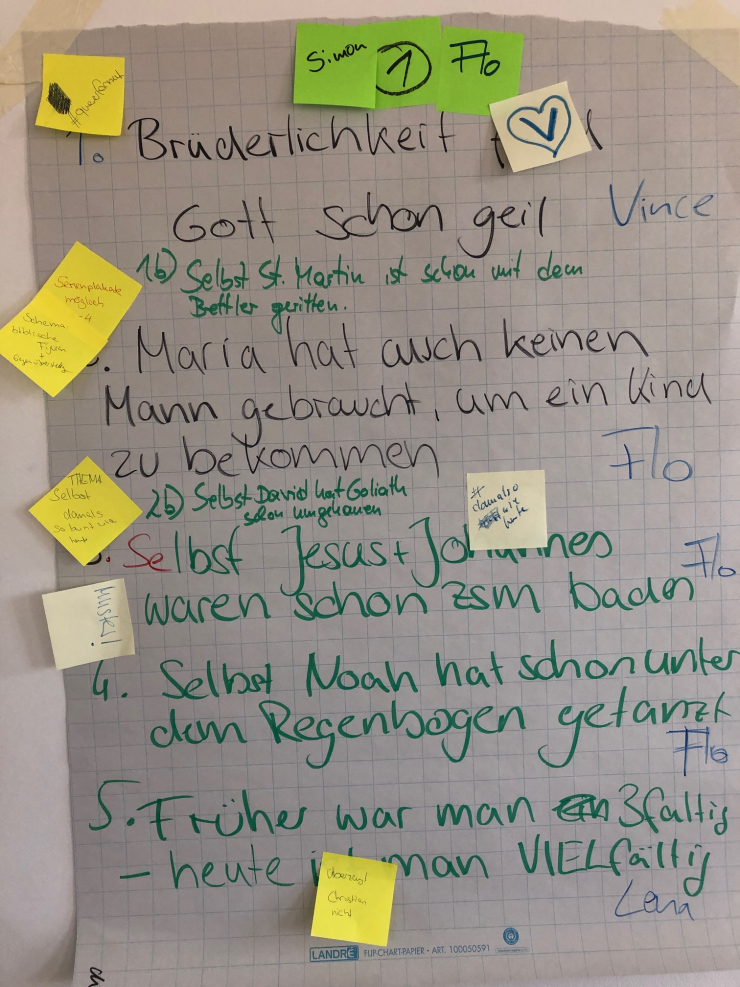 Simon 1 Flo
#queerformat
V
1. Brüderlichkeit
Gott schon geil Vince
1b) Selbst St. Martin ist schon mit dem
Bettler geritten.
Serienplakate
möglich
Schema
biblische
Figur
+
. Maria hat auch keinen
Mann gebraucht, um ein Kind
zu bekommen Flo
THEMA
Selbst
damals
so bunt wie
heute
2b) Selbst David hat Goliath
schon umgehauen
#
damalso
wie
heute
. Selbst Jesus + Johannes Flo
waren schon zsm baden
4. Selbst Noah hat schon unter
dem Regenbogen getanzt
Flo
5. Früher war man 3faltig
– heute ist man VIELfältig
Lena
überzeugt
Christian
nicht
LANDRÉ FLIP-CHART-PAPIER • ART. 100050591